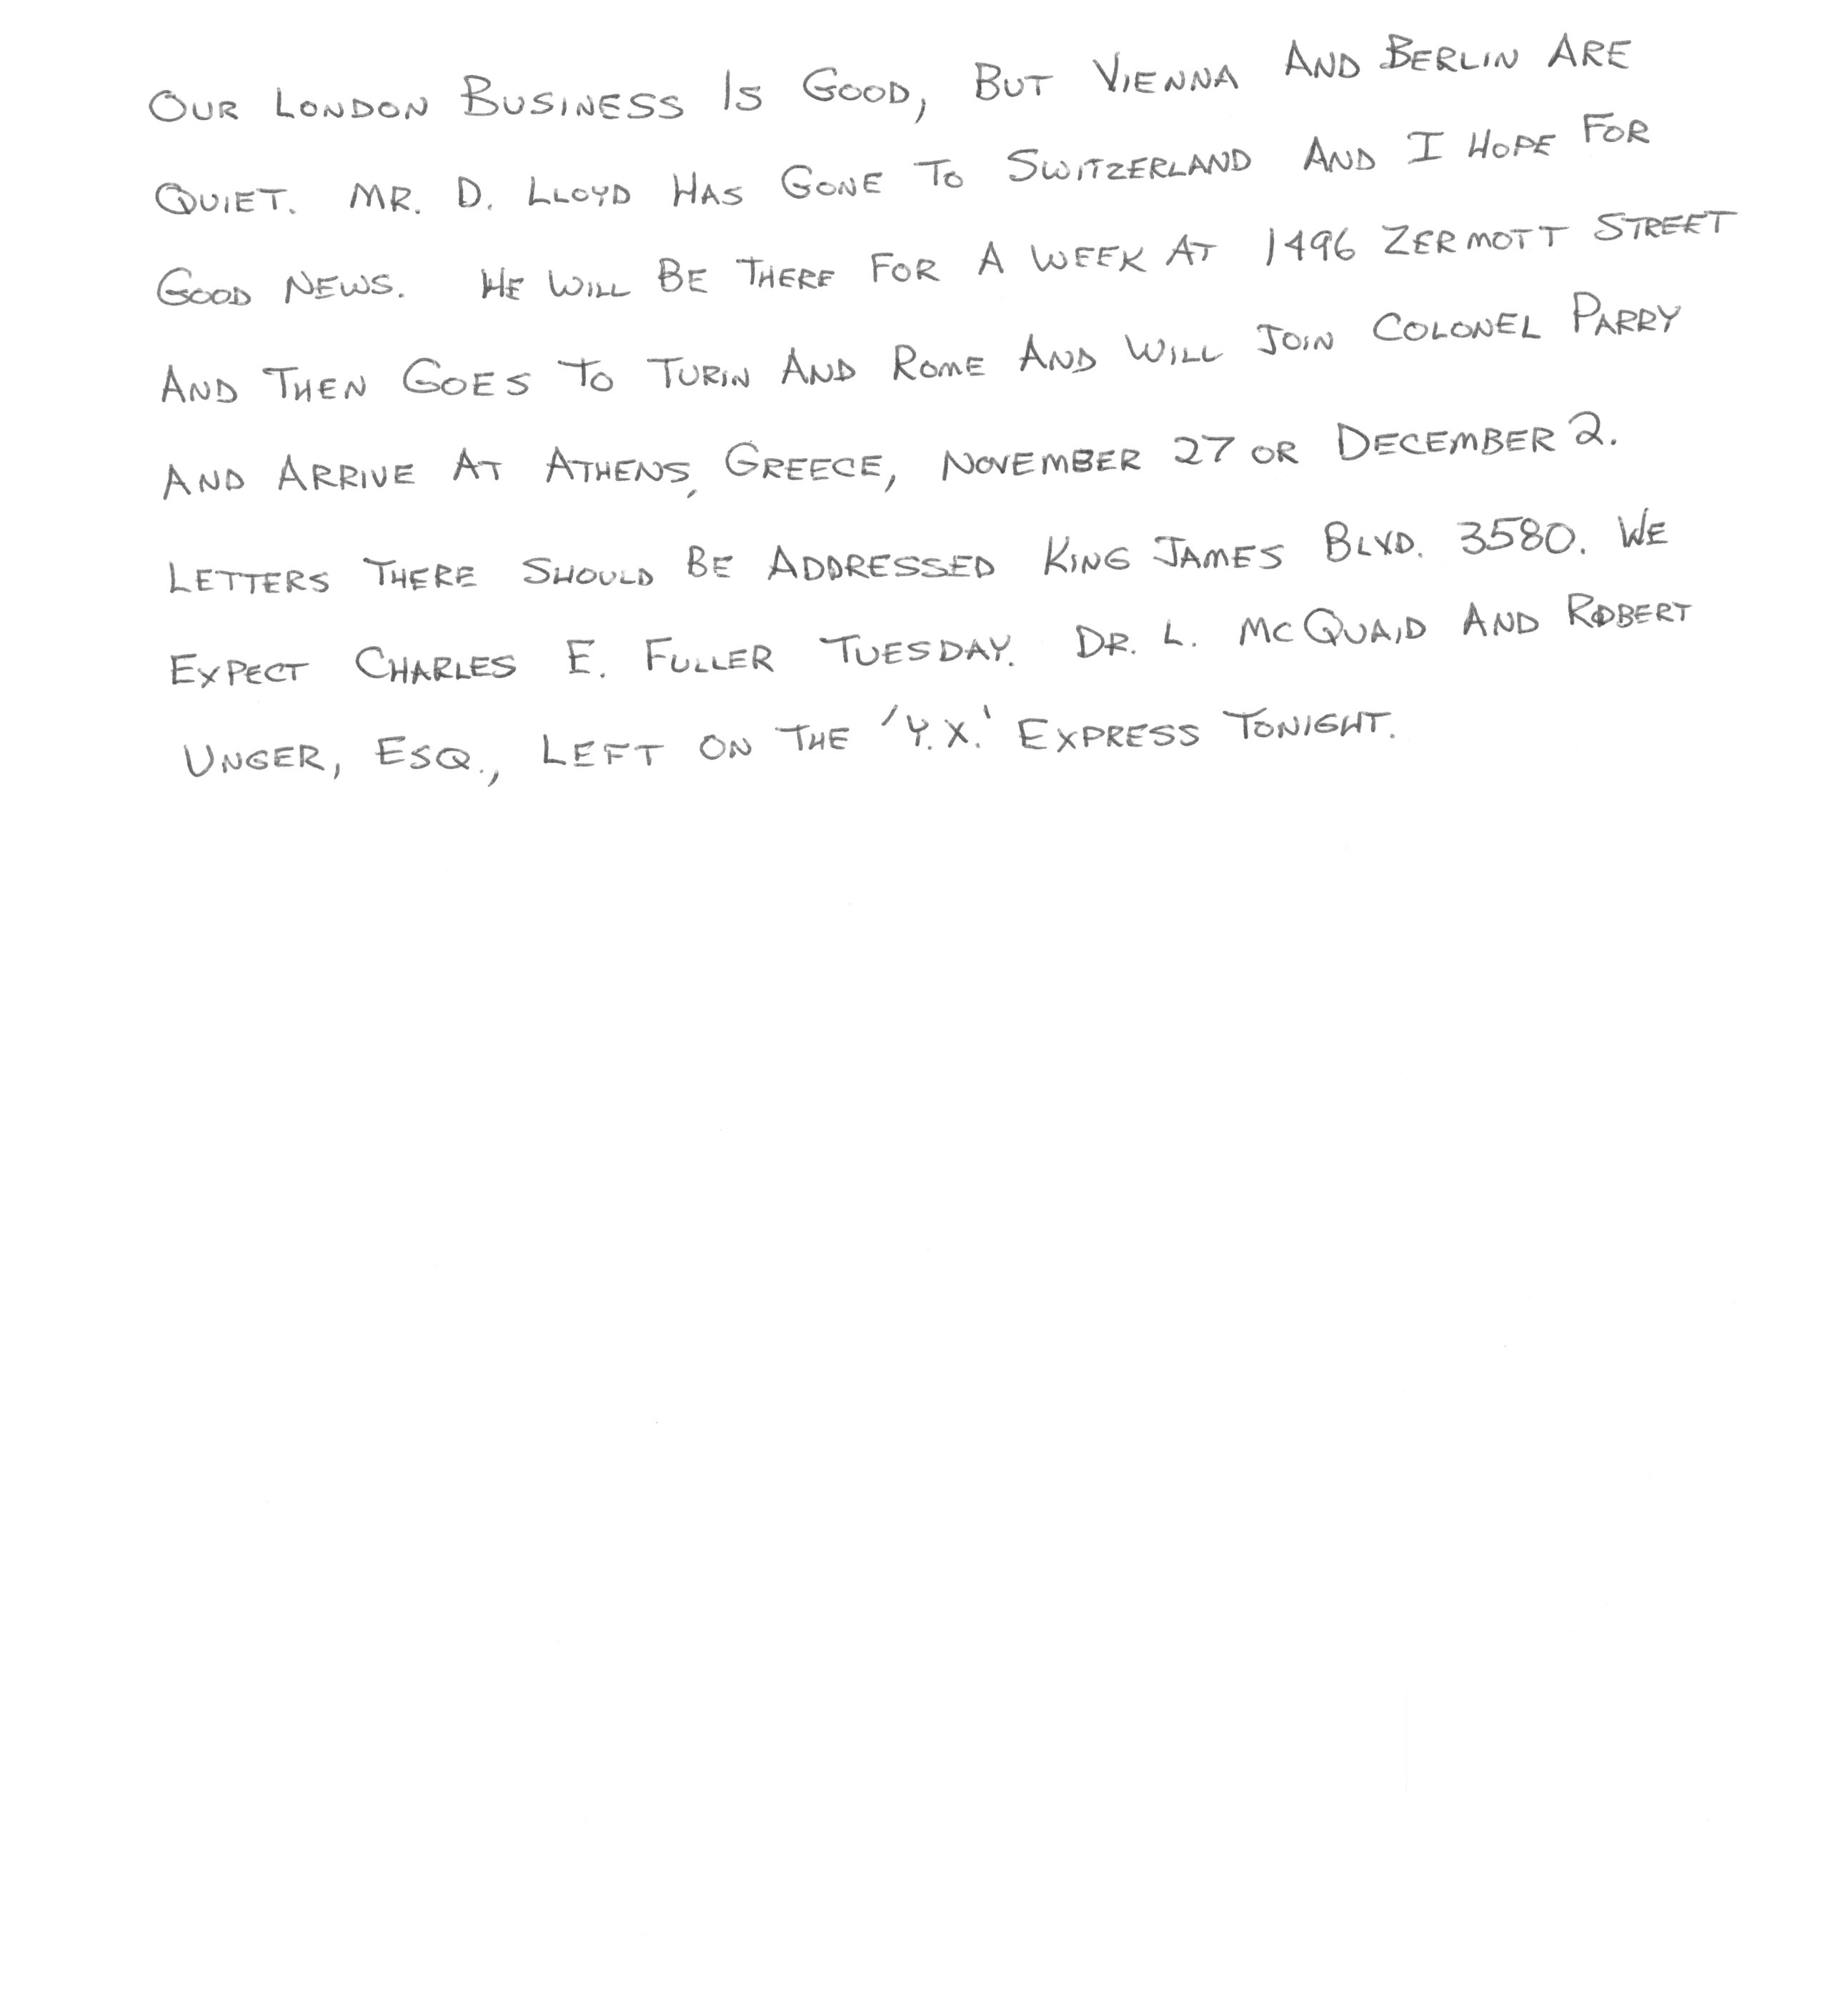 OUR LONDON BUSINESS IS GOOD, BUT VIENNA AND BERLIN ARE
QUIET. MR. D. LLOYD HAS GONE TO SWITZERLAND AND I HOPE FOR
GOOD NEWS. HE WILL BE THERE FOR A WEEK AT 1496 ZERMOTT STREET
AND THEN GOES TO TURIN AND ROME AND WILL JOIN COLONEL PARRY
AND ARRIVE AT ATHENS, GREECE, NOVEMBER 27 OR DECEMBER 2.
LETTERS THERE SHOULD BE ADDRESSED KING JAMES BLVD. 3580. WE
EXPECT CHARLES E. FULLER TUESDAY. DR. L. MCQUAID AND ROBERT
UNGER, ESQ., LEFT ON THE 'Y.X.' EXPRESS TONIGHT.